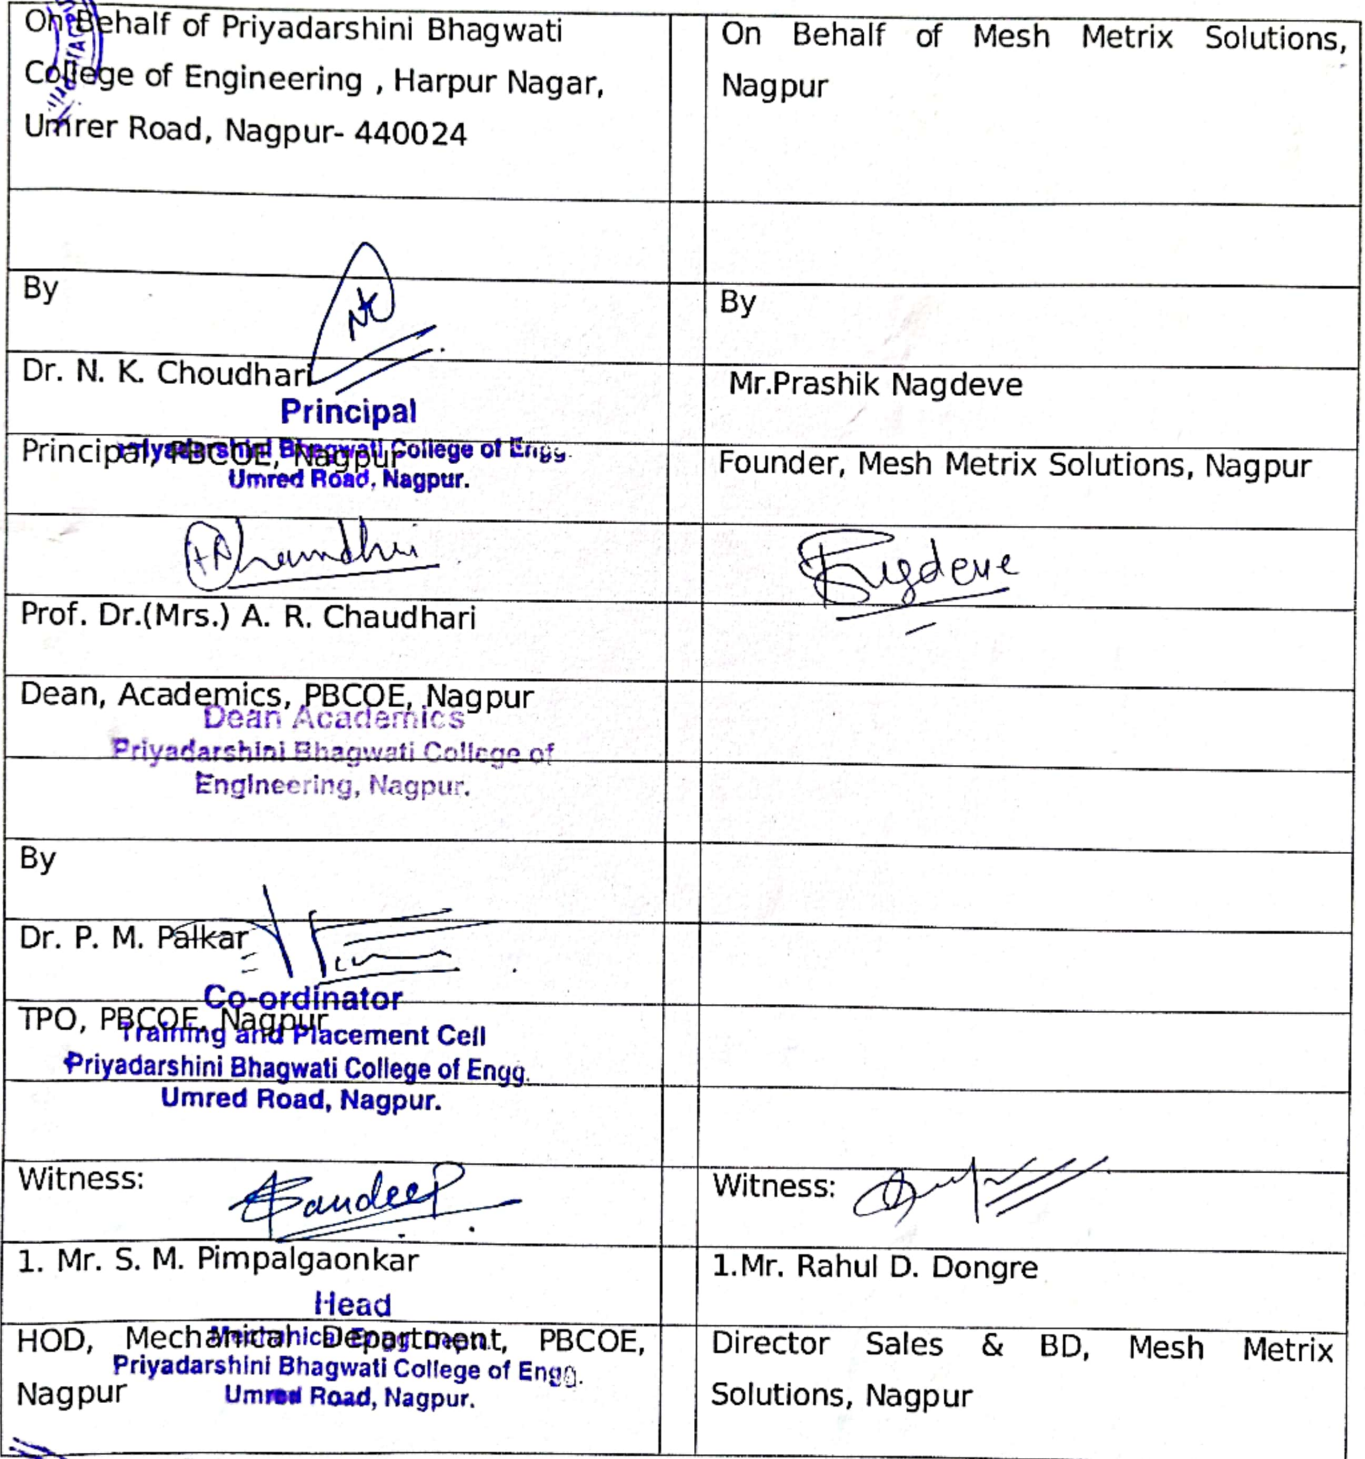 On Behalf of Priyadarshini Bhagwati
College of Engineering , Harpur Nagar,
Umrer Road, Nagpur- 440024
On Behalf of Mesh Metrix Solutions,
Nagpur
By
NK
By
Dr. N. K. Choudhari
Mr.Prashik Nagdeve
Principal
Principal, PBCOE, Nagpur
Priyadarshini Bhagwati College of Engg.
Umred Road, Nagpur.
Founder, Mesh Metrix Solutions, Nagpur
Prof. Dr.(Mrs.) A. R. Chaudhari
Dean, Academics, PBCOE, Nagpur
Dean Academics
Priyadarshini Bhagwati College of
Engineering, Nagpur.
By
Dr. P. M. Palkar
Co-ordinator
TPO, PBCOE, Nagpur
Training and Placement Cell
Priyadarshini Bhagwati College of Engg.
Umred Road, Nagpur.
Witness:
Sandeep
Witness:
1. Mr. S. M. Pimpalgaonkar
1.Mr. Rahul D. Dongre
Head
HOD, Mechanical Department, PBCOE,
Mechanical Engg. Dept.
Priyadarshini Bhagwati College of Engg.
Nagpur
Umred Road, Nagpur.
Director Sales & BD, Mesh Metrix
Solutions, Nagpur